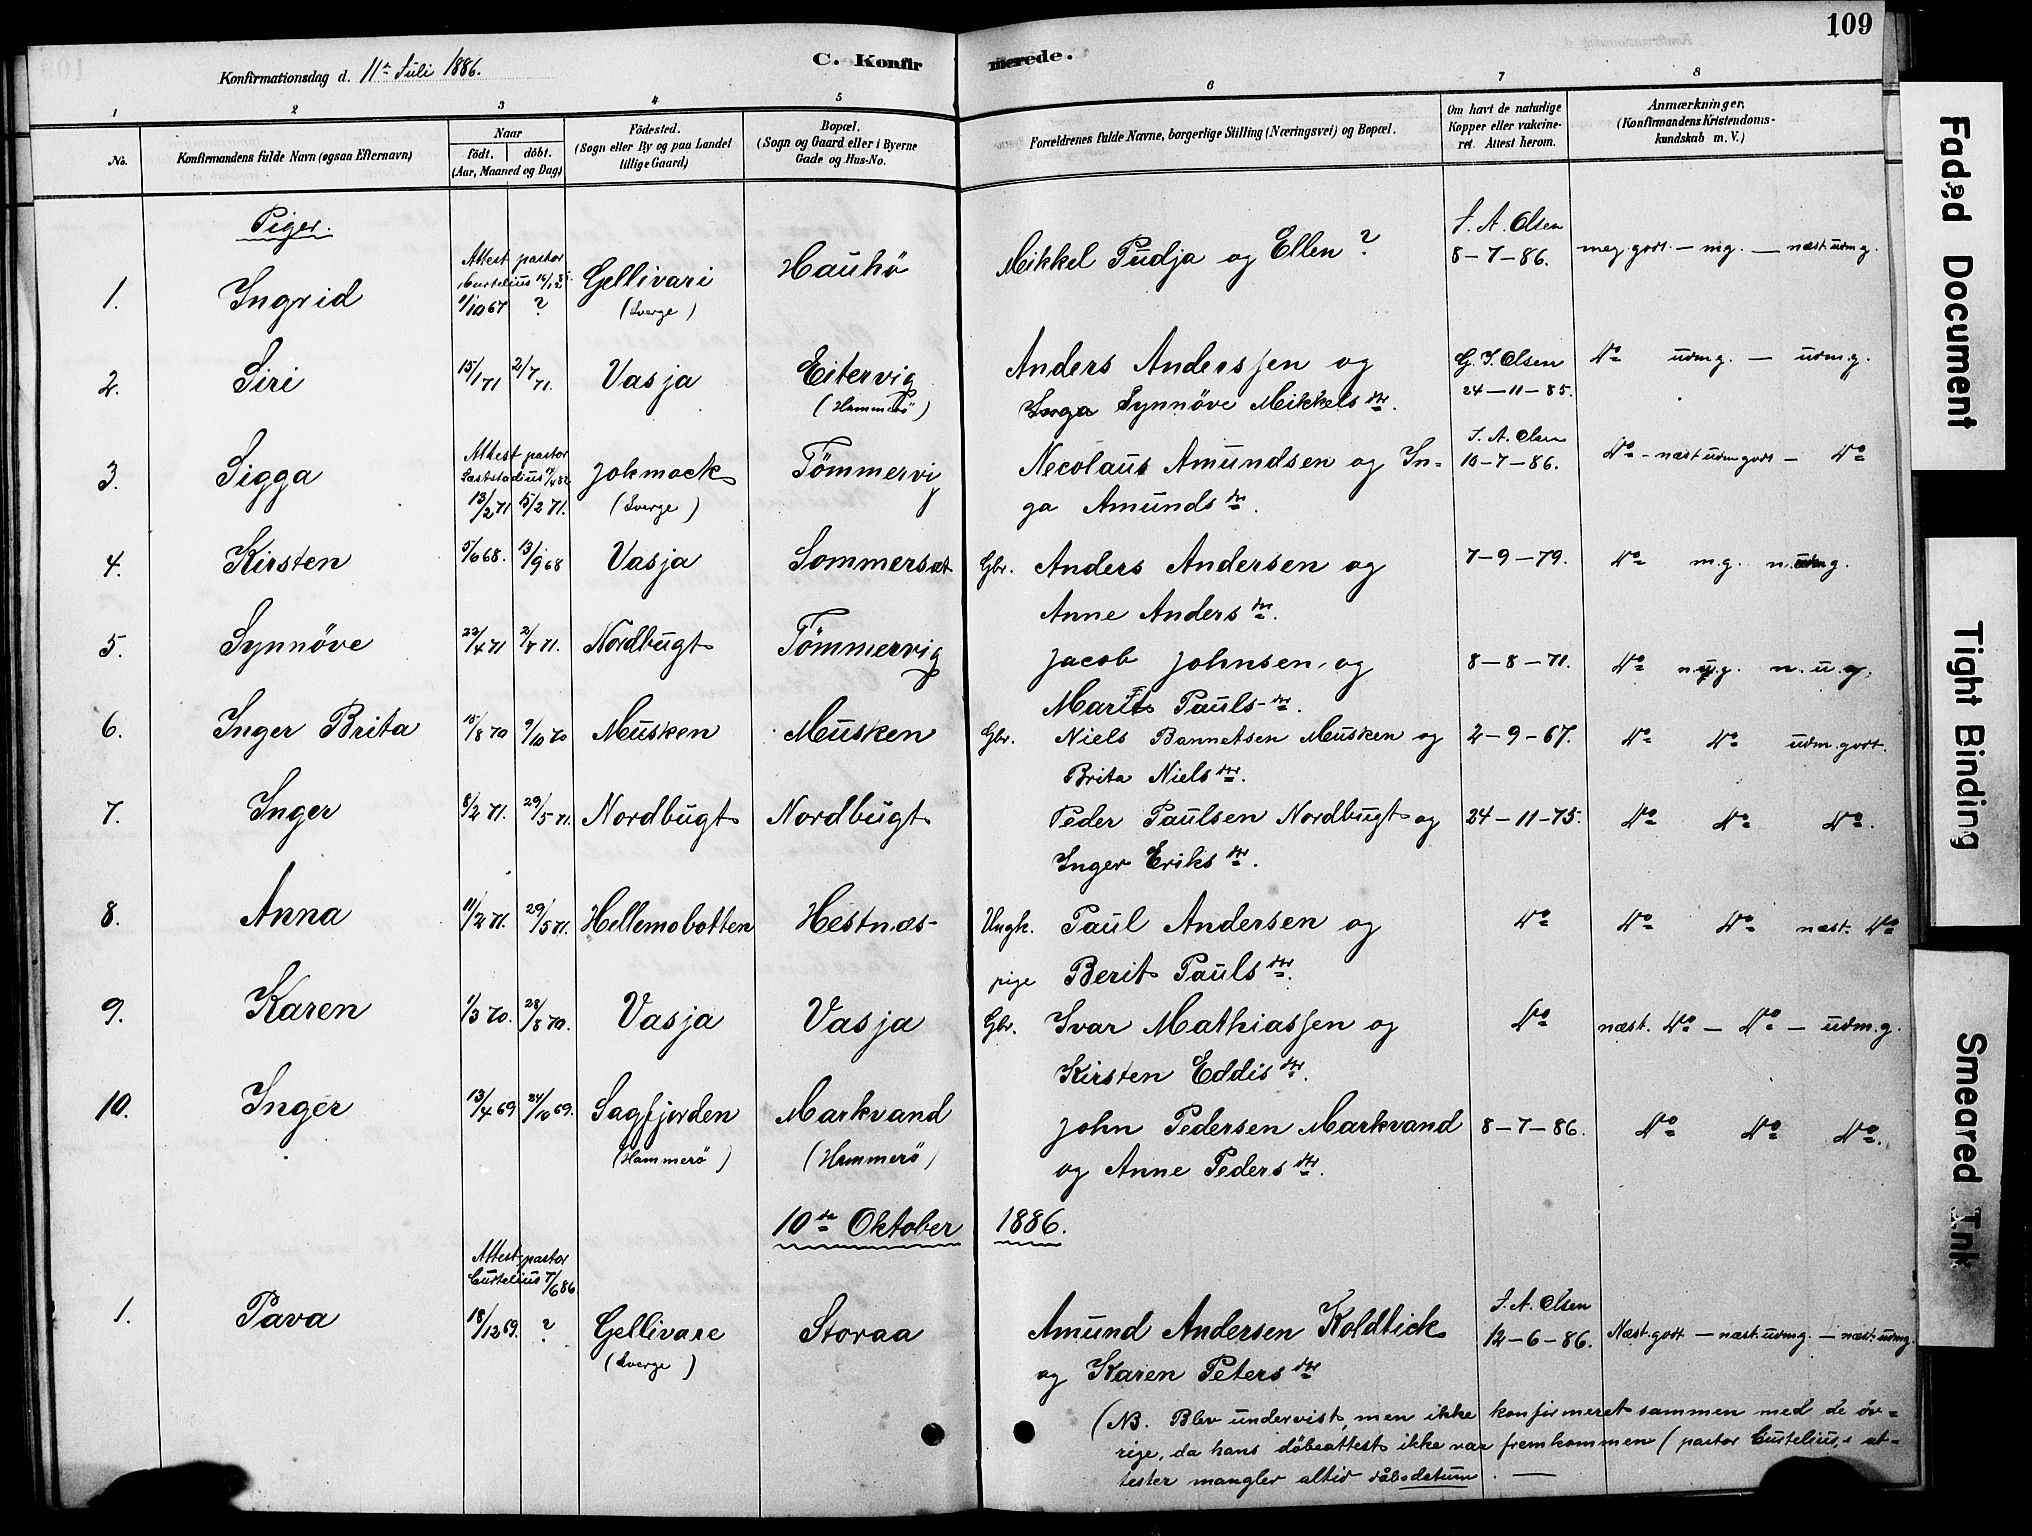 109
Konfirmationsdag d. 11te Juli 1886.
C. Konfirmerede.
1 2 3 4 5 6 7 8
No. Konfirmandens fulde Navn (ogsaa Efternavn) Naar födt. döbt. (Aar, Maaned og Dag) Födested. (Sogn eller By og paa Landet tillige Gaard) Bopæl. (Sogn og Gaard eller i Byerne Gade og Hus-No. Forældrenes fulde Navne, borgerlige Stilling (Næringsvei) og Bopæl. Om havt de naturlige Kopper eller vakcineret. Attest herom. Anmærkninger. (Konfirmandens Kristendomskundskab m. V.)
Piger.
Attest pastor
Curtelius
1. Ingrid 1/10 67 ? Gellivari (Sverge) Hauhö Mikkel Pudja og Ellen ? J. A. Olsen 8-7-86. meg. godt. — mg. — næst udm g.
2. Siri 15/1 71 2/7 71. Vasja Eitervig (Hammerö) Anders Anderssen og G. J. Olsen 24-11-85. do udm g. — udm. g.
Inga Synnöve Mikkels dtr.
Attest pastor
Læstadius
3. Sigga 13/2 71 15/2 71. Jokmock (Sverge) Tömmervig Necolaus Amundsen og In- J. A. Olsen 10-7-86. do - næst udm godt - do
ga Amunds dtr.
4. Kirsten 5/6 68. 13/9 68 Vasja Sommersæt Gbr. Anders Andersen og 7-9-79. do m.g. n. udm g.
Anne Anders dtr.
5. Synnöve 22/4 71 2/7 71. Nordbugt Tömmervig Jacob Johnsen og 8-8-71. do n.u.g. n. u. g.
Marit Pauls dtr.
6. Inger Brita 15/8 70 9/10 70 Musken Musken Gbr. Niels Bannetsen Musken og 2-9-67. do do udm. godt.
Brita Niels dtr.
7. Inger 8/2 71. 29/5 71. Nordbugt Nordbugt Peder Paulsen Nordbugt og 24-11-75. do do do.
Inger Eriks dtr.
8. Anna 11/2 71. 29/5 71. Hellemobotten Hestnæs- Ungk. Paul Andersen og do do do næst. do
pige Berit Pauls dtr.
9. Karen 1/3 70. 28/8 70. Vasja Vasja Gbr. Ivar Mathiassen og do næst. do - do - udm. g.
Kirsten Eddis dtr.
10. Inger 13/4 69 24/10 69. Sagfjorden (Hammerö) Markvand (Hammerö) John Pedersen Markvand 8-7-86. do do do.
og Anne Peders dtr.
10de Oktober 1886.
Attest pastor
Curtelius 7/6 86
1. Pava 18/12 69. ? Gellivare (Sverge) Storaa Amund Andersen Koldtick J. A. Olsen 12-6-86. Næst. godt — næst. udm g. — næst. udm g.
og Karen Peters dtr
(NB. Blev undervist, men ikke konfirmeret sammen med de öv-
rige, da hans döbeattest ikke var fremkommen (pastor Curtelius's at-
tester mangler altid dåbsdatum. —
Faded Document
Tight Binding
Smeared Ink